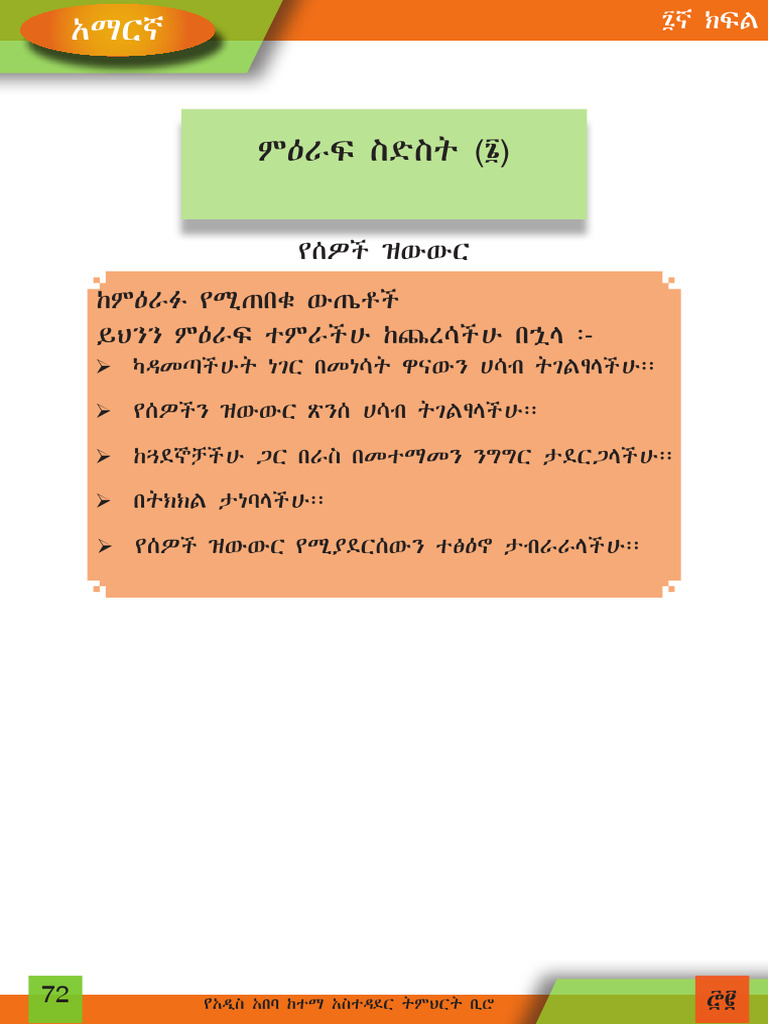 አማርኛ
፯ኛ ክፍል
ምዕራፍ ስድስት (፮)
የሰዎች ዝውውር
ከምዕራፉ የሚጠበቁ ውጤቶች
ይህንን ምዕራፍ ተምራችሁ ከጨረሳችሁ በኋላ ፡-
➢ ካዳመጣችሁት ነገር በመነሳት ዋናውን ሀሳብ ትገልፃላችሁ፡፡
➢ የሰዎችን ዝውውር ጽንሰ ሀሳብ ትገልፃላችሁ፡፡
➢ ከጓደኞቻችሁ ጋር በራስ በመተማመን ንግግር ታደርጋላችሁ፡፡
➢ በትክክል ታነባላችሁ፡፡
➢ የሰዎች ዝውውር የሚያደርሰውን ተፅዕኖ ታብራራላችሁ፡፡
72
የአዲስ አበባ ከተማ አስተዳደር ትምህርት ቢሮ
፸፪